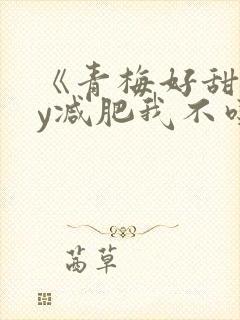 《青梅好甜
y减肥我不
茵草